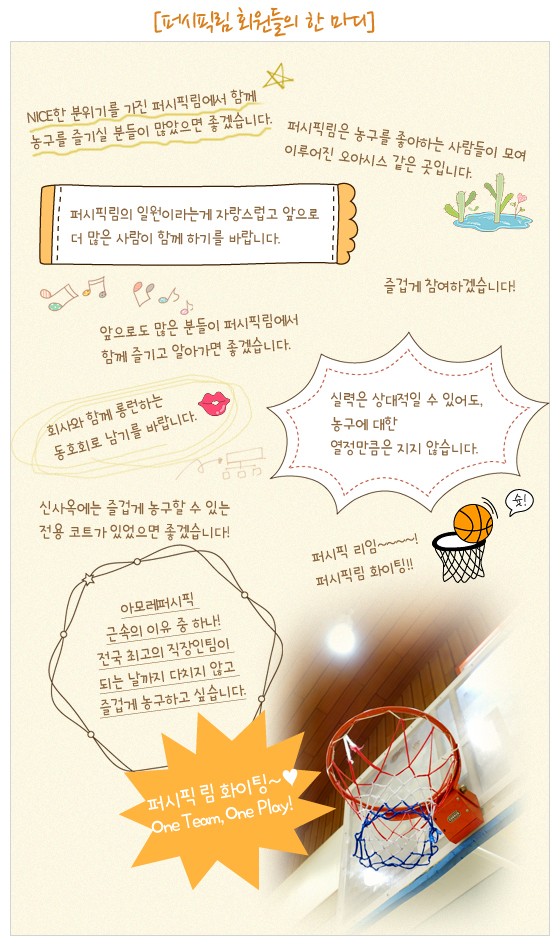 [퍼시픽림 회원들의 한 마디]
NICE한 분위기를 가진 퍼시픽림에서 함께
농구를 즐기실 분들이 많았으면 좋겠습니다.
퍼시픽림은 농구를 좋아하는 사람들이 모여
이루어진 오아시스 같은 곳입니다.
퍼시픽림의 일원이라는게 자랑스럽고 앞으로
더 많은 사람이 함께 하기를 바랍니다.
즐겁게 참여하겠습니다!
앞으로도 많은 분들이 퍼시픽림에서
함께 즐기고 알아가면 좋겠습니다.
회사와 함께 롱런하는
동호회로 남기를 바랍니다.
실력은 상대적일 수 있어도,
농구에 대한
열정만큼은 지지 않습니다.
신사옥에는 즐겁게 농구할 수 있는
전용 코트가 있었으면 좋겠습니다!
슛!
퍼시픽 리임~~~~!
퍼시픽림 화이팅!!
아모레퍼시픽
근속의 이유 중 하나!
전국 최고의 직장인팀이
되는 날까지 다치지 않고
즐겁게 농구하고 싶습니다.
퍼시픽 림 화이팅~♥
One Team, One Play!